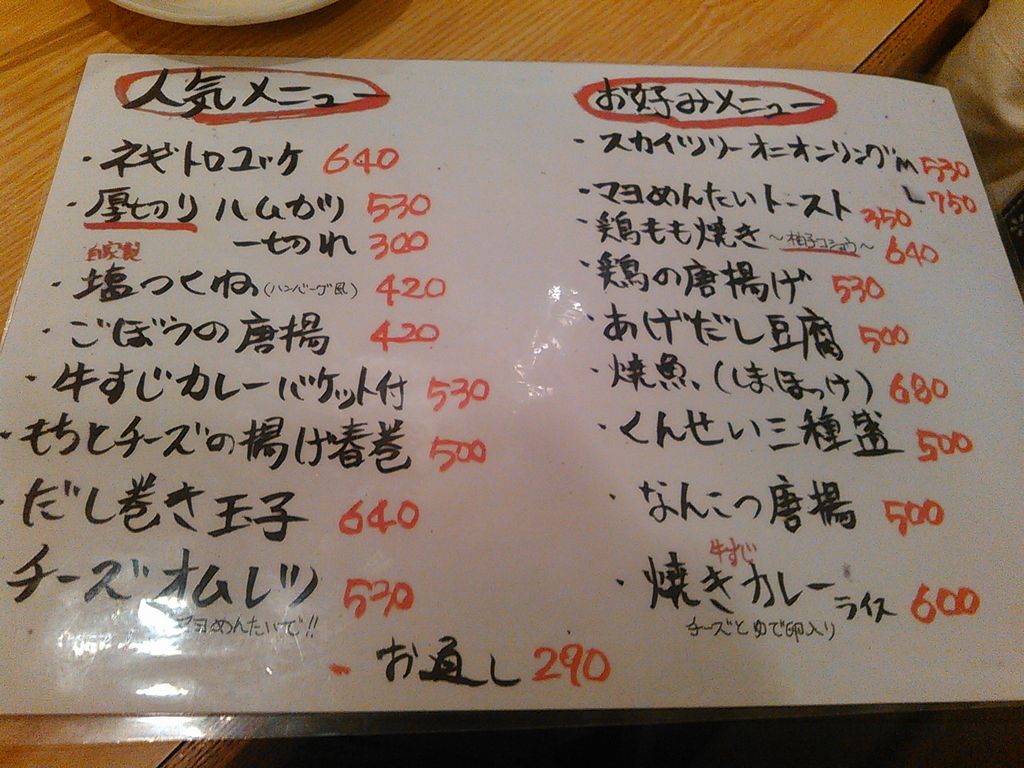 人気メニュー
・ネギトロユッケ 640
・厚切りハムカツ 530
一切れ 300
自家製
・塩つくね(ハンバーグ風) 420
・ごぼうの唐揚 420
・牛すじカレーバケット付 530
・もちとチーズの揚げ春巻 500
・だし巻き玉子 640
チーズオムレツ 530
マヨめんたいで!!
お好みメニュー
・スカイツリーオニオンリング M 530
L 750
・マヨめんたいトースト 350
・鶏もも焼き ~柚子コショウ~ 640
・鶏の唐揚げ 530
・あげだし豆腐 500
・焼魚(しまほっけ) 680
・くんせい三種盛 500
・なんこつ唐揚 500
牛すじ
・焼きカレーライス 600
チーズとゆで卵入り
- お通し 290